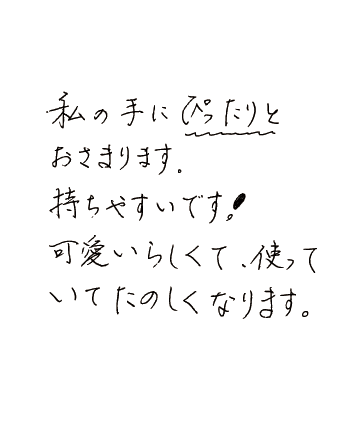 私の手にぴったりと
おさまります。
持ちやすいです!
可愛いらしくて、使って
いてたのしくなります。